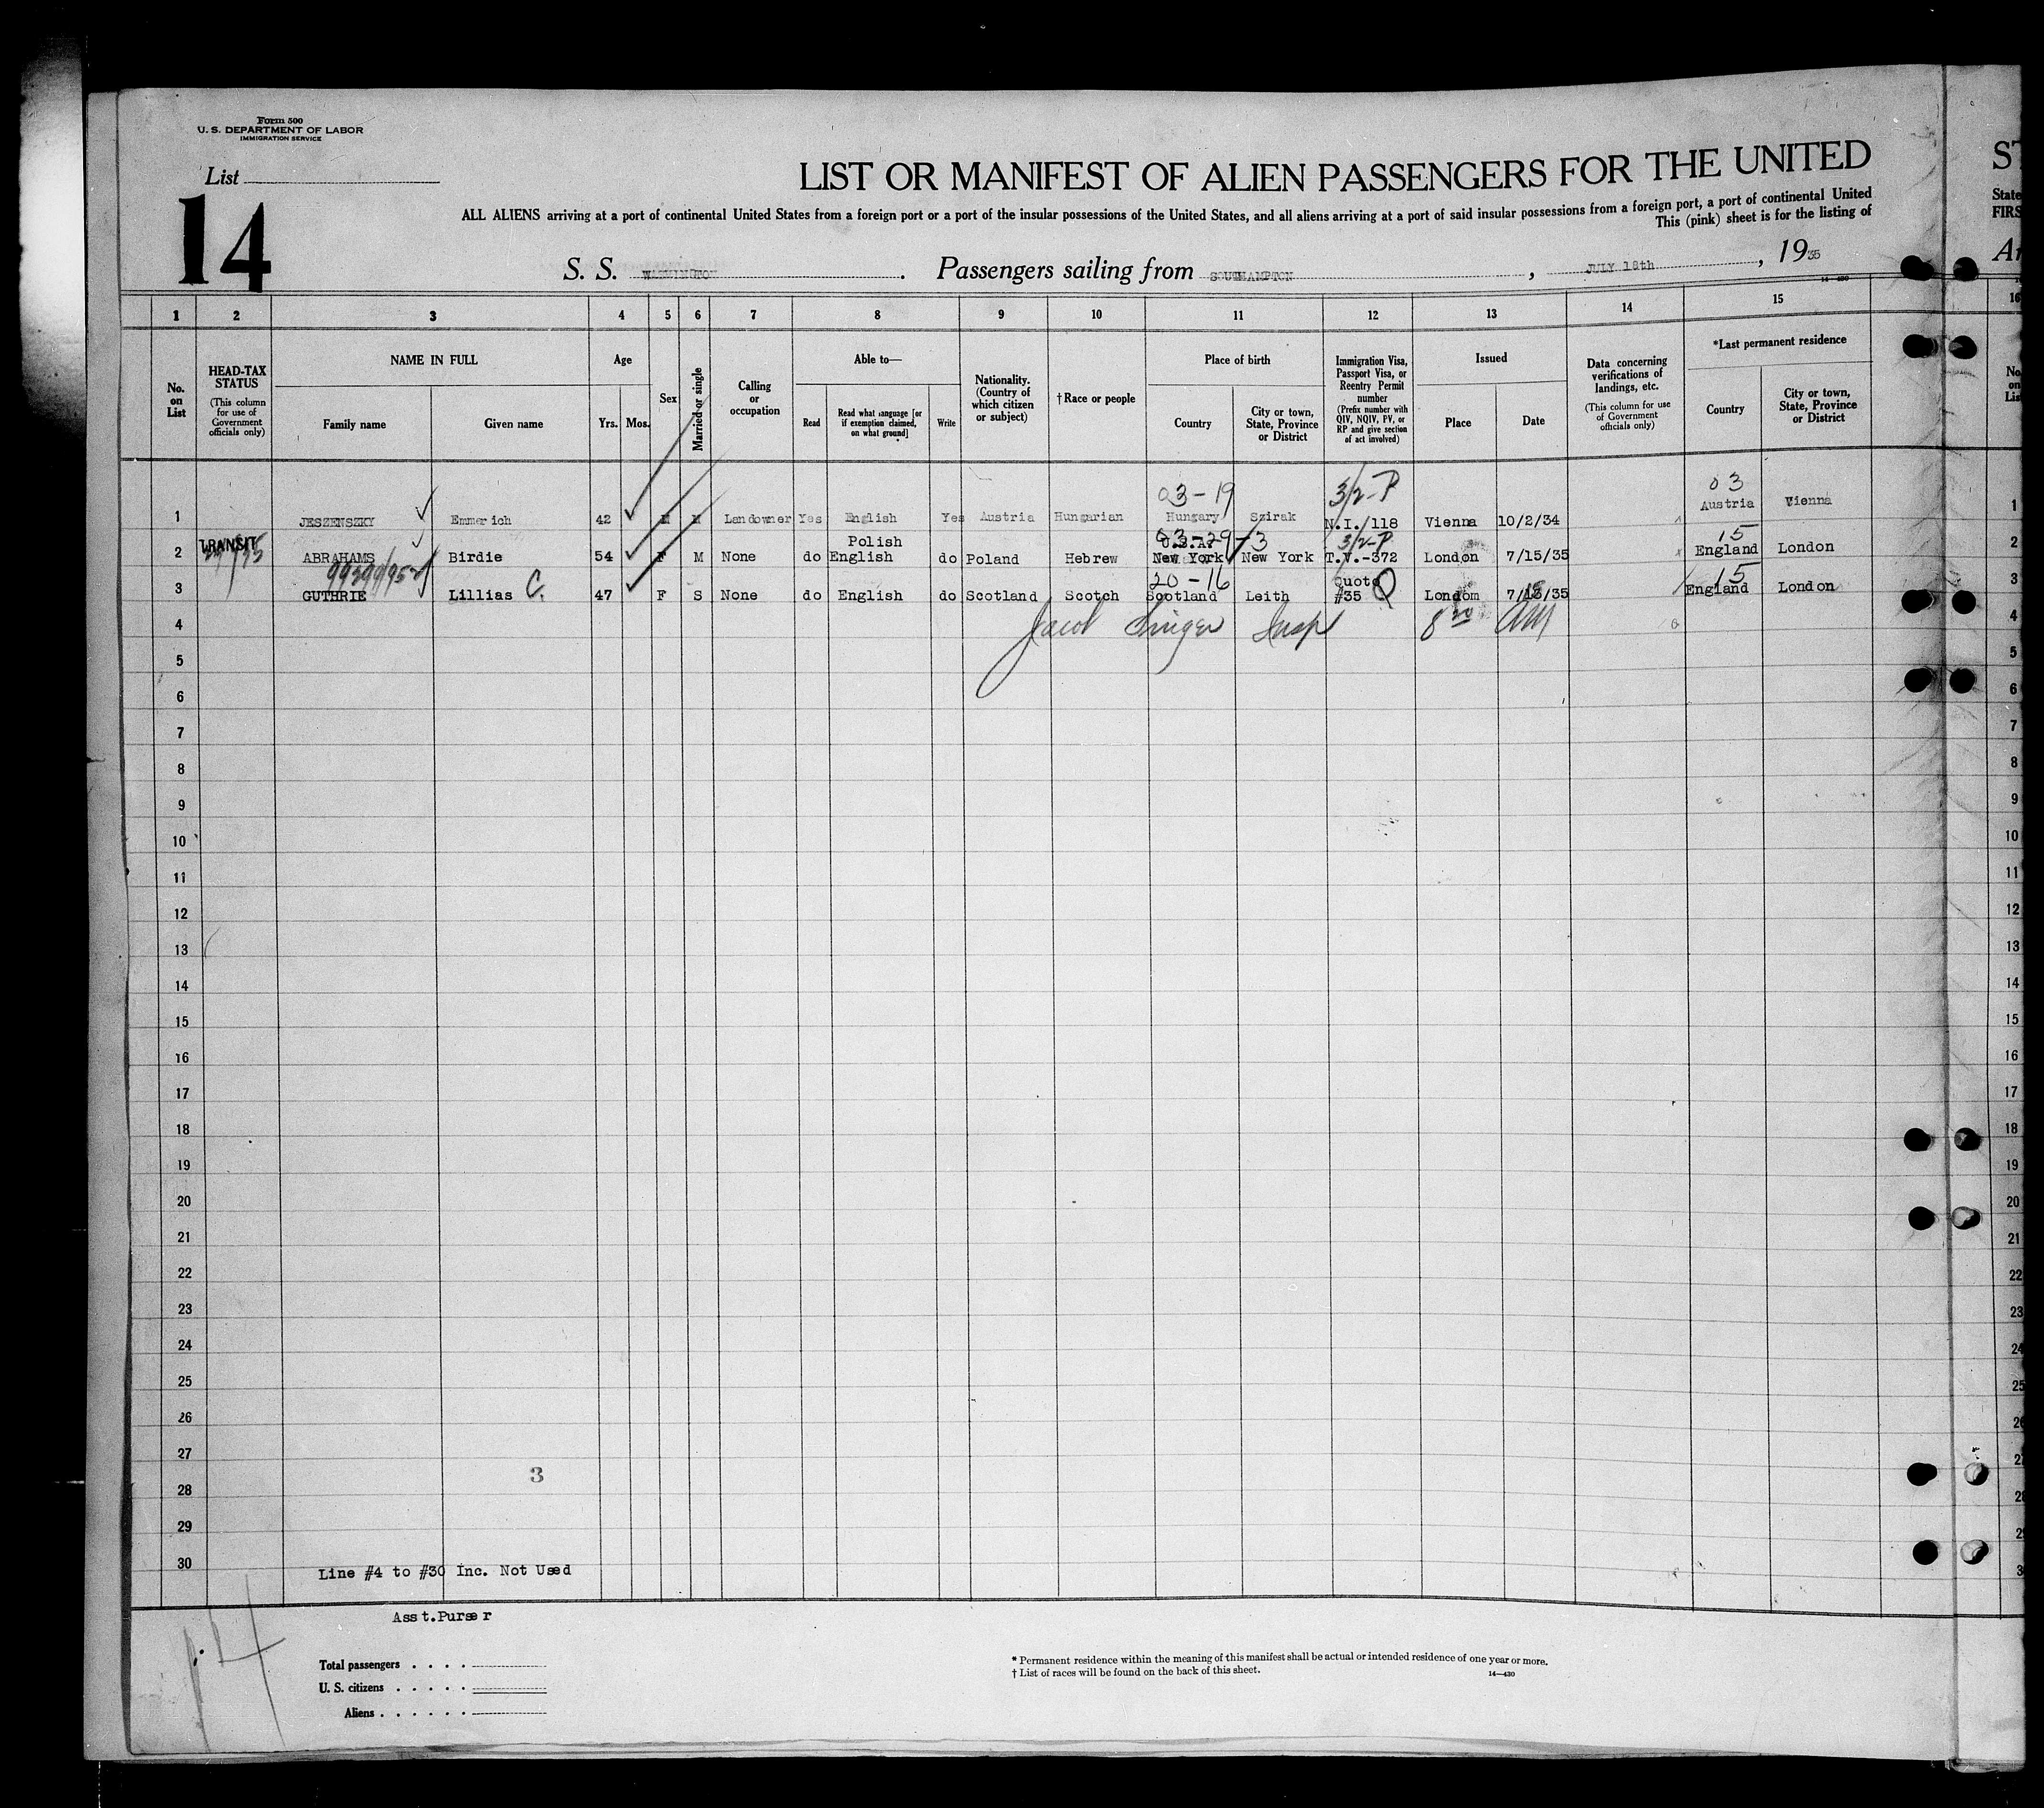 Form 500
U. S. DEPARTMENT OF LABOR
IMMIGRATION SERVICE
List
14
LIST OR MANIFEST OF ALIEN PASSENGERS FOR THE UNITED
ST
ALL ALIENS arriving at a port of continental United States from a foreign port or a port of the insular possessions of the United States, and all aliens arriving at a port of said insular possessions from a foreign port, a port of continental United
State
This (pink) sheet is for the listing of
FIRS
S. S. WASHINGTON. Passengers sailing from SOUTHAMPTON, JULY 18th, 1935
Ar
14—430
1 2 3 4 5 6 7 8 9 10 11 12 13 14 15 16
No. on List
HEAD-TAX STATUS
(This column for use of Government officials only)
NAME IN FULL
Family name
Given name
Age
Yrs. Mos.
Sex
Married or single
Calling or occupation
Able to—
Read
Read what language [or if exemption claimed, on what ground]
Write
Nationality. (Country of which citizen or subject)
† Race or people
Place of birth
Country
City or town, State, Province or District
Immigration Visa, Passport Visa, or Reentry Permit number
(Prefix number with QIV, NQIV, PV, or RP and give section of act involved)
Issued
Place
Date
Data concerning verifications of landings, etc.
(This column for use of Government officials only)
*Last permanent residence
Country
City or town, State, Province or District
No. on List
03-19 3/2-P 03
1 JESZENSZKY Emmerich 42 M M Landowner Yes English Yes Austria Hungarian Hungary Szirak N.I. 118 Vienna 10/2/34 Austria Vienna 1
TRANSIT Polish U.S.A. 3/2-P 15
2 ABRAHAMS Birdie 54 F M None do English do Poland Hebrew New York New York T.V.-372 London 7/15/35 England London 2
20-16 Quota Q 15
3 GUTHRIE Lillias C. 47 F S None do English do Scotland Scotch Scotland Leith #35 London 7/18/35 England London 3
4 Jacob Singer Insp 8 30 AM 4
5 5
6 6
7 7
8 8
9 9
10 10
11 11
12 12
13 13
14 14
15 15
16 16
17 17
18 18
19 19
20 20
21 21
22 22
23 23
24 24
25 25
26 26
27 27
3
28 28
29 29
30 30
Line #4 to #30 Inc. Not Used
Asst.Purser
14
Total passengers . . . .
U. S. citizens . . . . .
Aliens . . . . . .
* Permanent residence within the meaning of this manifest shall be actual or intended residence of one year or more.
† List of races will be found on the back of this sheet.
14—430